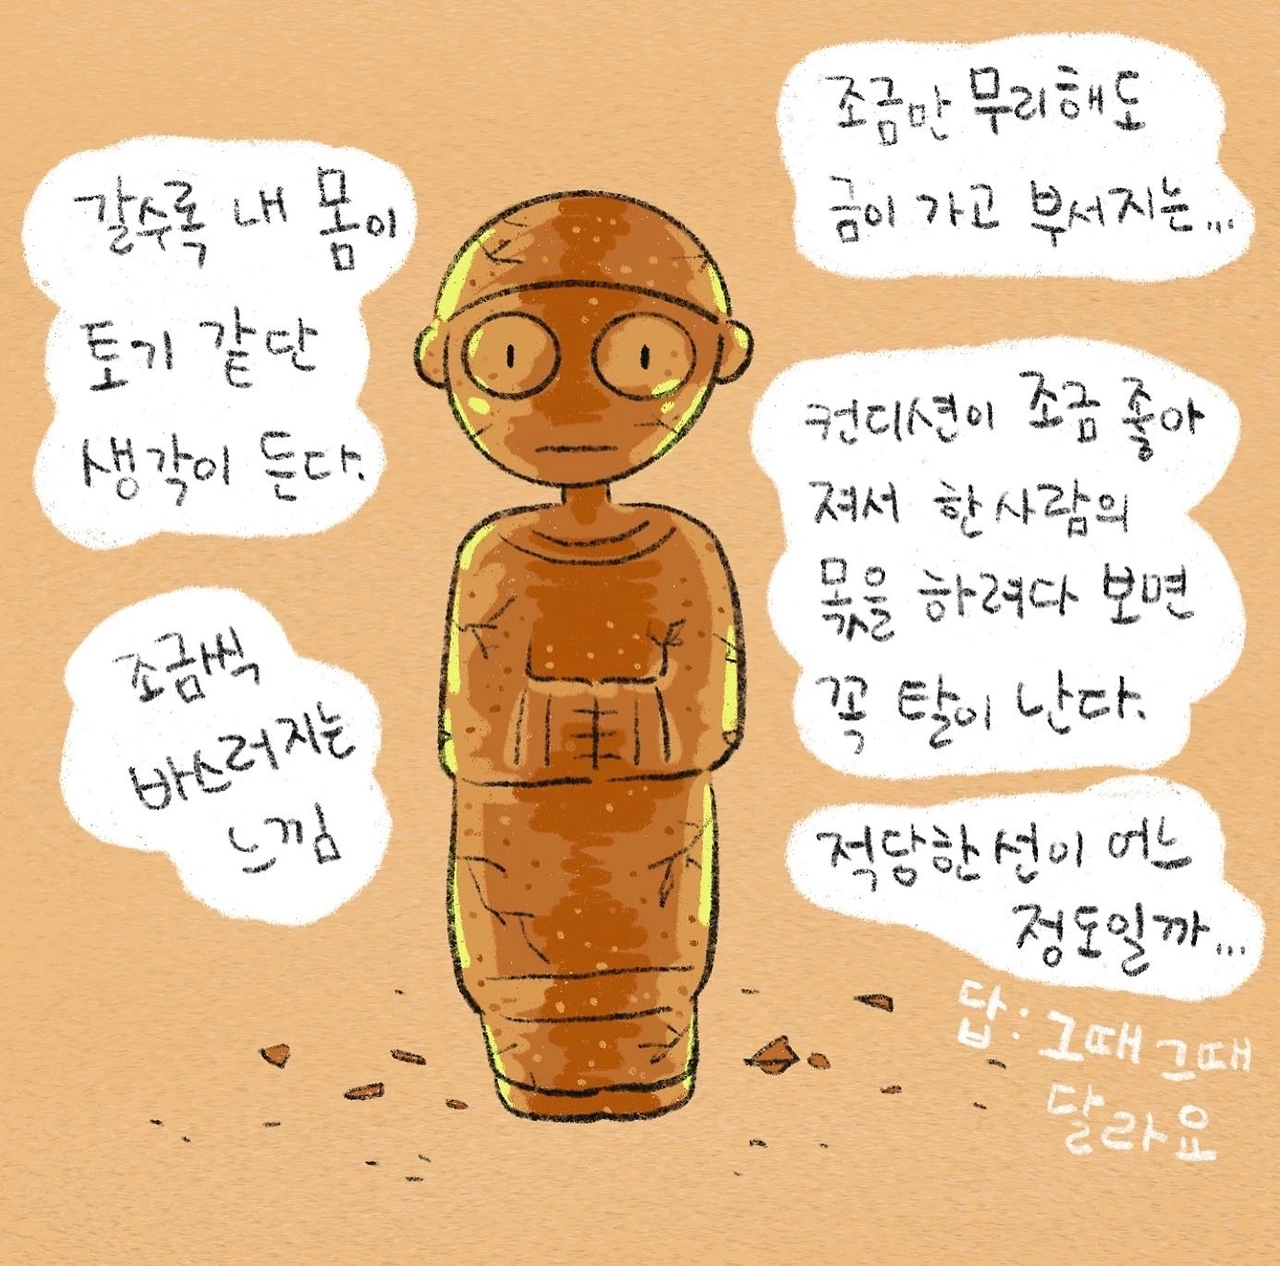 갈수록 내 몸이
토기 같단
생각이 든다.
조금만 무리해도
금이 가고 부서지는...
조금씩
바스러지는
느낌
컨디션이 조금 좋아
져서 한 사람의
몫을 하려다 보면
꼭 탈이 난다.
적당한 선이 어느
정도일까...
답: 그때그때
달라요